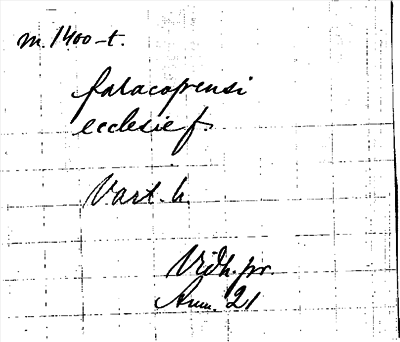 m. 1400-t.
faracopensi
ecclesie f.
Vart. h.
Vidh. pr.
Ann. 21